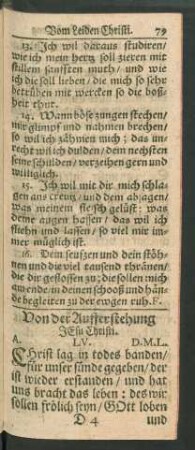 Vom Leiden Christi. 79
13. Ich wil daraus studiren/
wie ich mein hertz soll zieren mit
stillem sanfften muth/ und wie
ich die soll lieben/ die mich so sehr
betrüben mit wercken so die boß-
heit thut.
14. Wann böse zungen stechen/
mir glimpf und nahmen brechen/
so wil ich zähmen mich: das un-
recht wil ich dulden/ dem nechsten
seine schulden/ verzeihen gern und
williglich.
15. Ich wil mit dir mich schla-
gen ans creutz/ und dem absagen/
was meinem fleisch gelüst: was
deine augen hassen/ das wil ich
fliehn und lassen/ so viel mir im-
mer müglich ist.
16. Dein seufzen und dein stöh-
nen und die viel tausend thränen/
die dir geflossen zu; die sollen mich
am ende in deinen schooß und hän-
de begleiten zu der ewgen ruh. F.
Von der Aufferstehung
JEsu Christi.
A. LV. D. M. L.
Christ lag in todes banden/
für unser sünde gegeben/ der
ist wieder erstanden/ und hat
uns bracht das leben: des wir
sollen frölich seyn/ GOtt loben
D 4 und